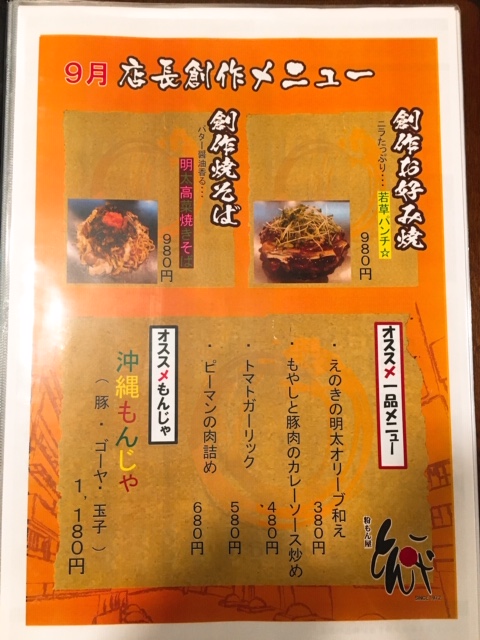 9月 店長創作メニュー
創作お好み焼
ニラたっぷり…
若草パンチ☆
980円
創作焼そば
バター醤油香る…
明太高菜焼きそば
980円
オススメ一品メニュー
・えのきの明太オリーブ和え
380円
・もやしと豚肉のカレーソース炒め
480円
・トマトガーリック
580円
・ピーマンの肉詰め
680円
オススメもんじゃ
沖縄もんじゃ
（豚・ゴーヤ・玉子）
1,180円
粉もん屋